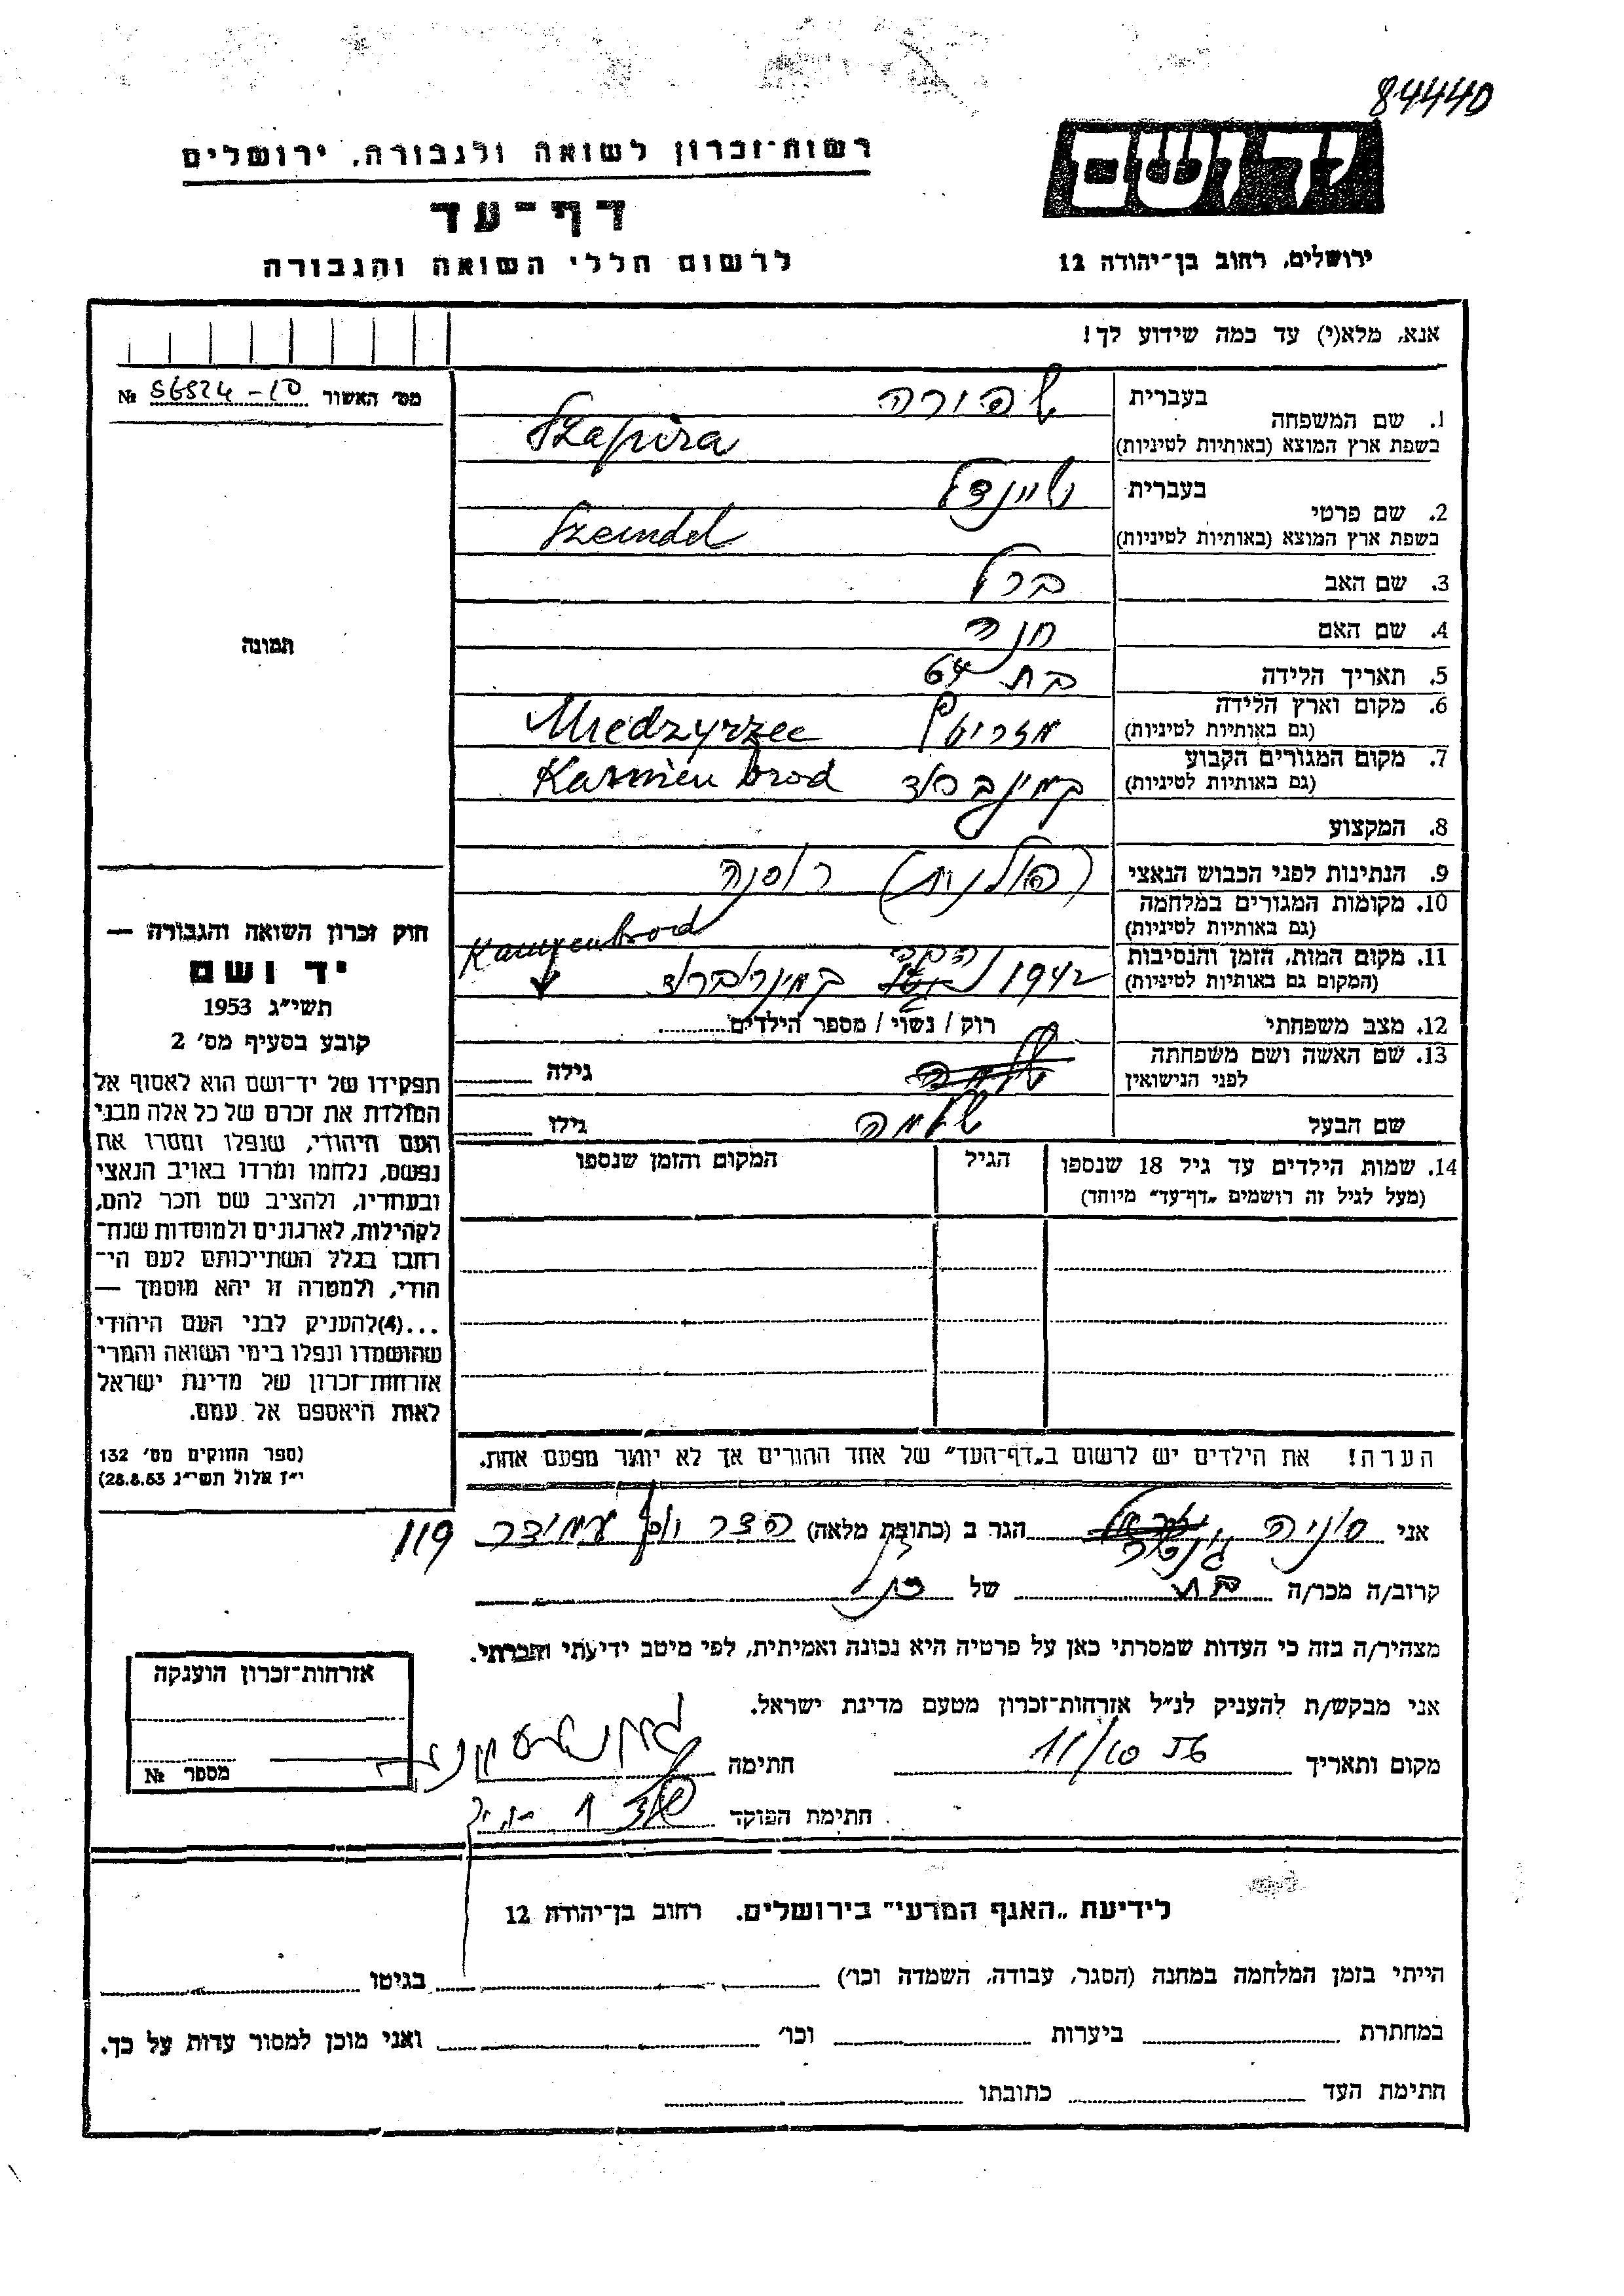 84440
יד ושם
רשות־זכרון לשואה ולגבורה, ירושלים
דף־עד
לרשום חללי השואה והגבורה
ירושלים, רחוב בן־יהודה 12
אנא, מלא(י) עד כמה שידוע לך!
מס׳ האשור 56524-10 №
תמונה
1. שם המשפחה בעברית שפירה
בשפת ארץ המוצא (באותיות לטיניות) Szapira
2. שם פרטי בעברית שיינדל
בשפת ארץ המוצא (באותיות לטיניות) Szeindel
3. שם האב ברל
4. שם האם חנה
5. תאריך הלידה בת 64
6. מקום וארץ הלידה (גם באותיות לטיניות) Miedzyrzec
7. מקום המגורים הקבוע (גם באותיות לטיניות) קמינברוד Kamien brod
8. המקצוע
9. הנתינות לפני הכבוש הנאצי (פולנית) רוסיה
10. מקומות המגורים במלחמה (גם באותיות לטיניות)
11. מקום המות, הזמן והנסיבות (המקום גם באותיות לטיניות) 1942 קמינברוד
12. מצב משפחתי רוק / נשוי / מספר הילדים
13. שם האשה ושם משפחתה לפני הנישואין גילה
שם הבעל שלמה גילו
14. שמות הילדים עד גיל 18 שנספו הגיל המקום והזמן שנספו
(מעל לגיל זה רושמים „דף־עד” מיוחד)
הערה! את הילדים יש לרשום ב„דף־העד” של אחד ההורים אך לא יותר מפעם אחת.
חוק זכרון השואה והגבורה —
יד ושם
תשי״ג 1953
קובע בסעיף מס׳ 2
תפקידו של יד־ושם הוא לאסוף אל
המולדת את זכרם של כל אלה מבני
העם היהודי, שנפלו ומסרו את
נפשם, נלחמו ומרדו באויב הנאצי
ובעוזריו, ולהציב שם וזכר להם,
לקהילות, לארגונים ולמוסדות שנח־
רבו בגלל השתייכותם לעם הי־
הודי, ולמטרה זו יהא מוסמך —
...(4)להעניק לבני העם היהודי
שהושמדו ונפלו בימי השואה והמרי
אזרחות־זכרון של מדינת ישראל
לאות היאספם אל עמם.
(ספר החוקים מס׳ 132
י״ז אלול תשי״ג 28.8.53)
אני סוניה הגר ב (כתובת מלאה) עמידר 119
קרוב/ה מכר/ה בת של
מצהיר/ה בזה כי העדות שמסרתי כאן על פרטיה היא נכונה ואמיתית, לפי מיטב ידיעתי והכרתי.
אני מבקש/ת להעניק לנ״ל אזרחות־זכרון מטעם מדינת ישראל.
מקום ותאריך 11/10 חתימה
חתימת הפוקד
אזרחות־זכרון הוענקה
מספר №
לידיעת „האגף המדעי” בירושלים. רחוב בן־יהודה 12
הייתי בזמן המלחמה במחנה (הסגר, עבודה, השמדה וכו׳) בגיטו
במחתרת ביערות וכו׳ ואני מוכן למסור עדות על כך.
חתימת העד כתובתו